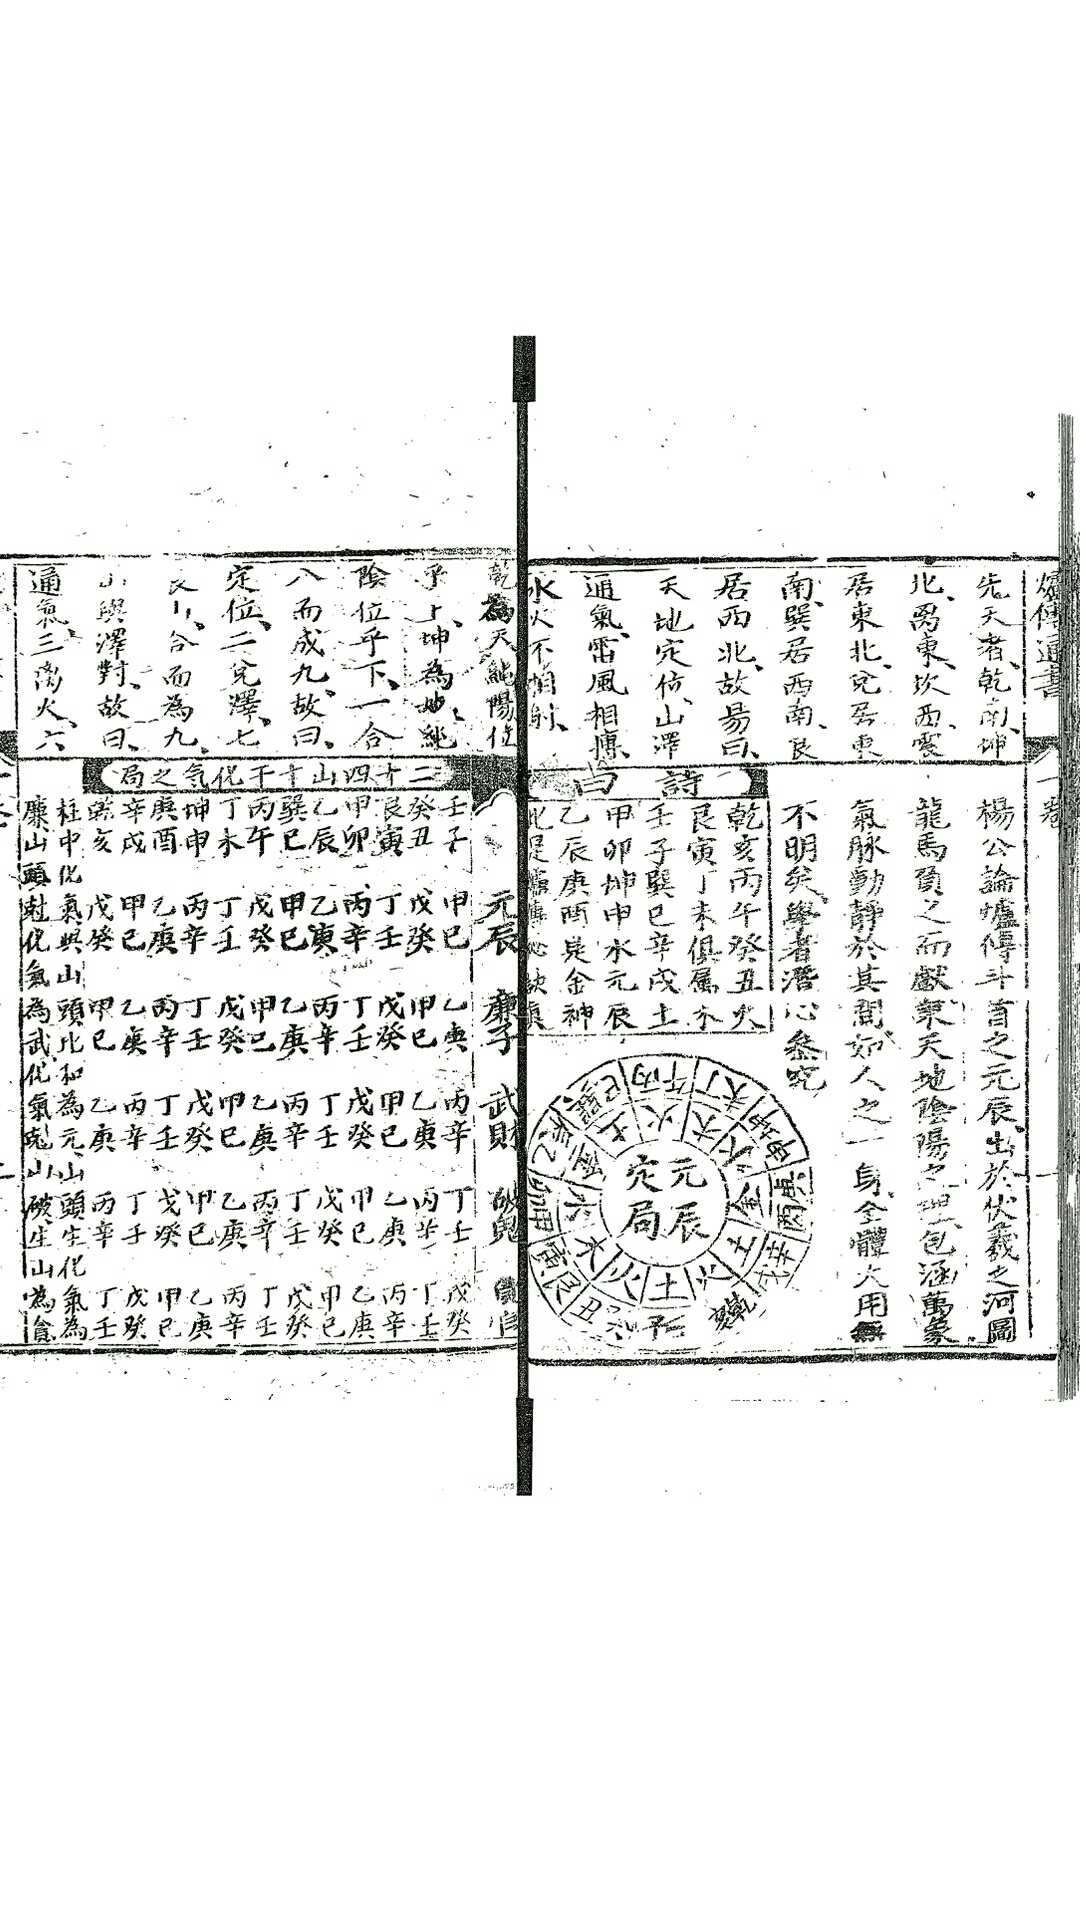 爐傳通書
一卷
先天者、乾南、坤
北、离東、坎西、震
居東北、兌居東
南、巽居西南、艮
居西北、故昜曰、
天地定位、山澤
通氣、雷風相摶、
水火不相射、
楊公論爐傳斗首之元辰、出於伏羲之河圖
龍馬負之而獻、秉天地陰陽之理、包涵萬象
氣脉動静於其間、如人之一身、全體大用無
不明矣、學者潛心叅究
詩曰
乾亥丙午癸丑火
艮寅丁未俱属木
壬子巽巳辛戌土
甲卯坤申水元辰
乙辰庚酉是金神
此是爐傳心訣真
元辰
定局
乾為天純陽位
乎上、坤為地、純
陰位乎下、一合
八而成九、故曰、
定位、二兌澤、七
艮山、合而為九、
山與澤對、故曰、
通氣、三离火、六
二十四山十干化氣之局
元辰 廉子 武財 破鬼 官
壬子 甲己 乙庚 丙辛 丁壬 戊癸
癸丑 戊癸 甲己 乙庚 丙辛 丁壬
艮寅 丁壬 戊癸 甲己 乙庚 丙辛
甲卯 丙辛 丁壬 戊癸 甲己 乙庚
乙辰 乙庚 丙辛 丁壬 戊癸 甲己
巽巳 甲己 乙庚 丙辛 丁壬 戊癸
丙午 戊癸 甲己 乙庚 丙辛 丁壬
丁未 丁壬 戊癸 甲己 乙庚 丙辛
坤申 丙辛 丁壬 戊癸 甲己 乙庚
庚酉 乙庚 丙辛 丁壬 戊癸 甲己
辛戌 甲己 乙庚 丙辛 丁壬 戊癸
乾亥 戊癸 甲己 乙庚 丙辛 丁壬
柱中化氣與山頭比和為元、山頭生化氣為
廉、山頭尅化氣為武、化氣尅山破、生山為貪